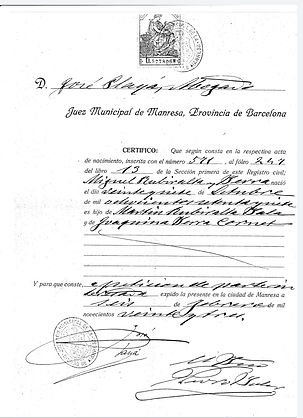 D. José Playá, Abogado
Juez Municipal de Manresa, Provincia de Barcelona
CERTIFICO: Que según consta en la respectiva acta
de nacimiento, inscrita con el número 541 al fólio 247
del libro 13 de la Sección primera de este Registro civil;
Miguel Rubiralta y Serra nació
el día veintisiete de Octubre
de mil ochocientos ochenta y siete
es hijo de Martín Rubiralta Sala
y de Joaquina Serra Cornet
Y para que conste, a petición de parte in-
teresada expido la presente en la ciudad de Manresa a
seis de febrero de mil
novecientos veintytres.
José
Playá